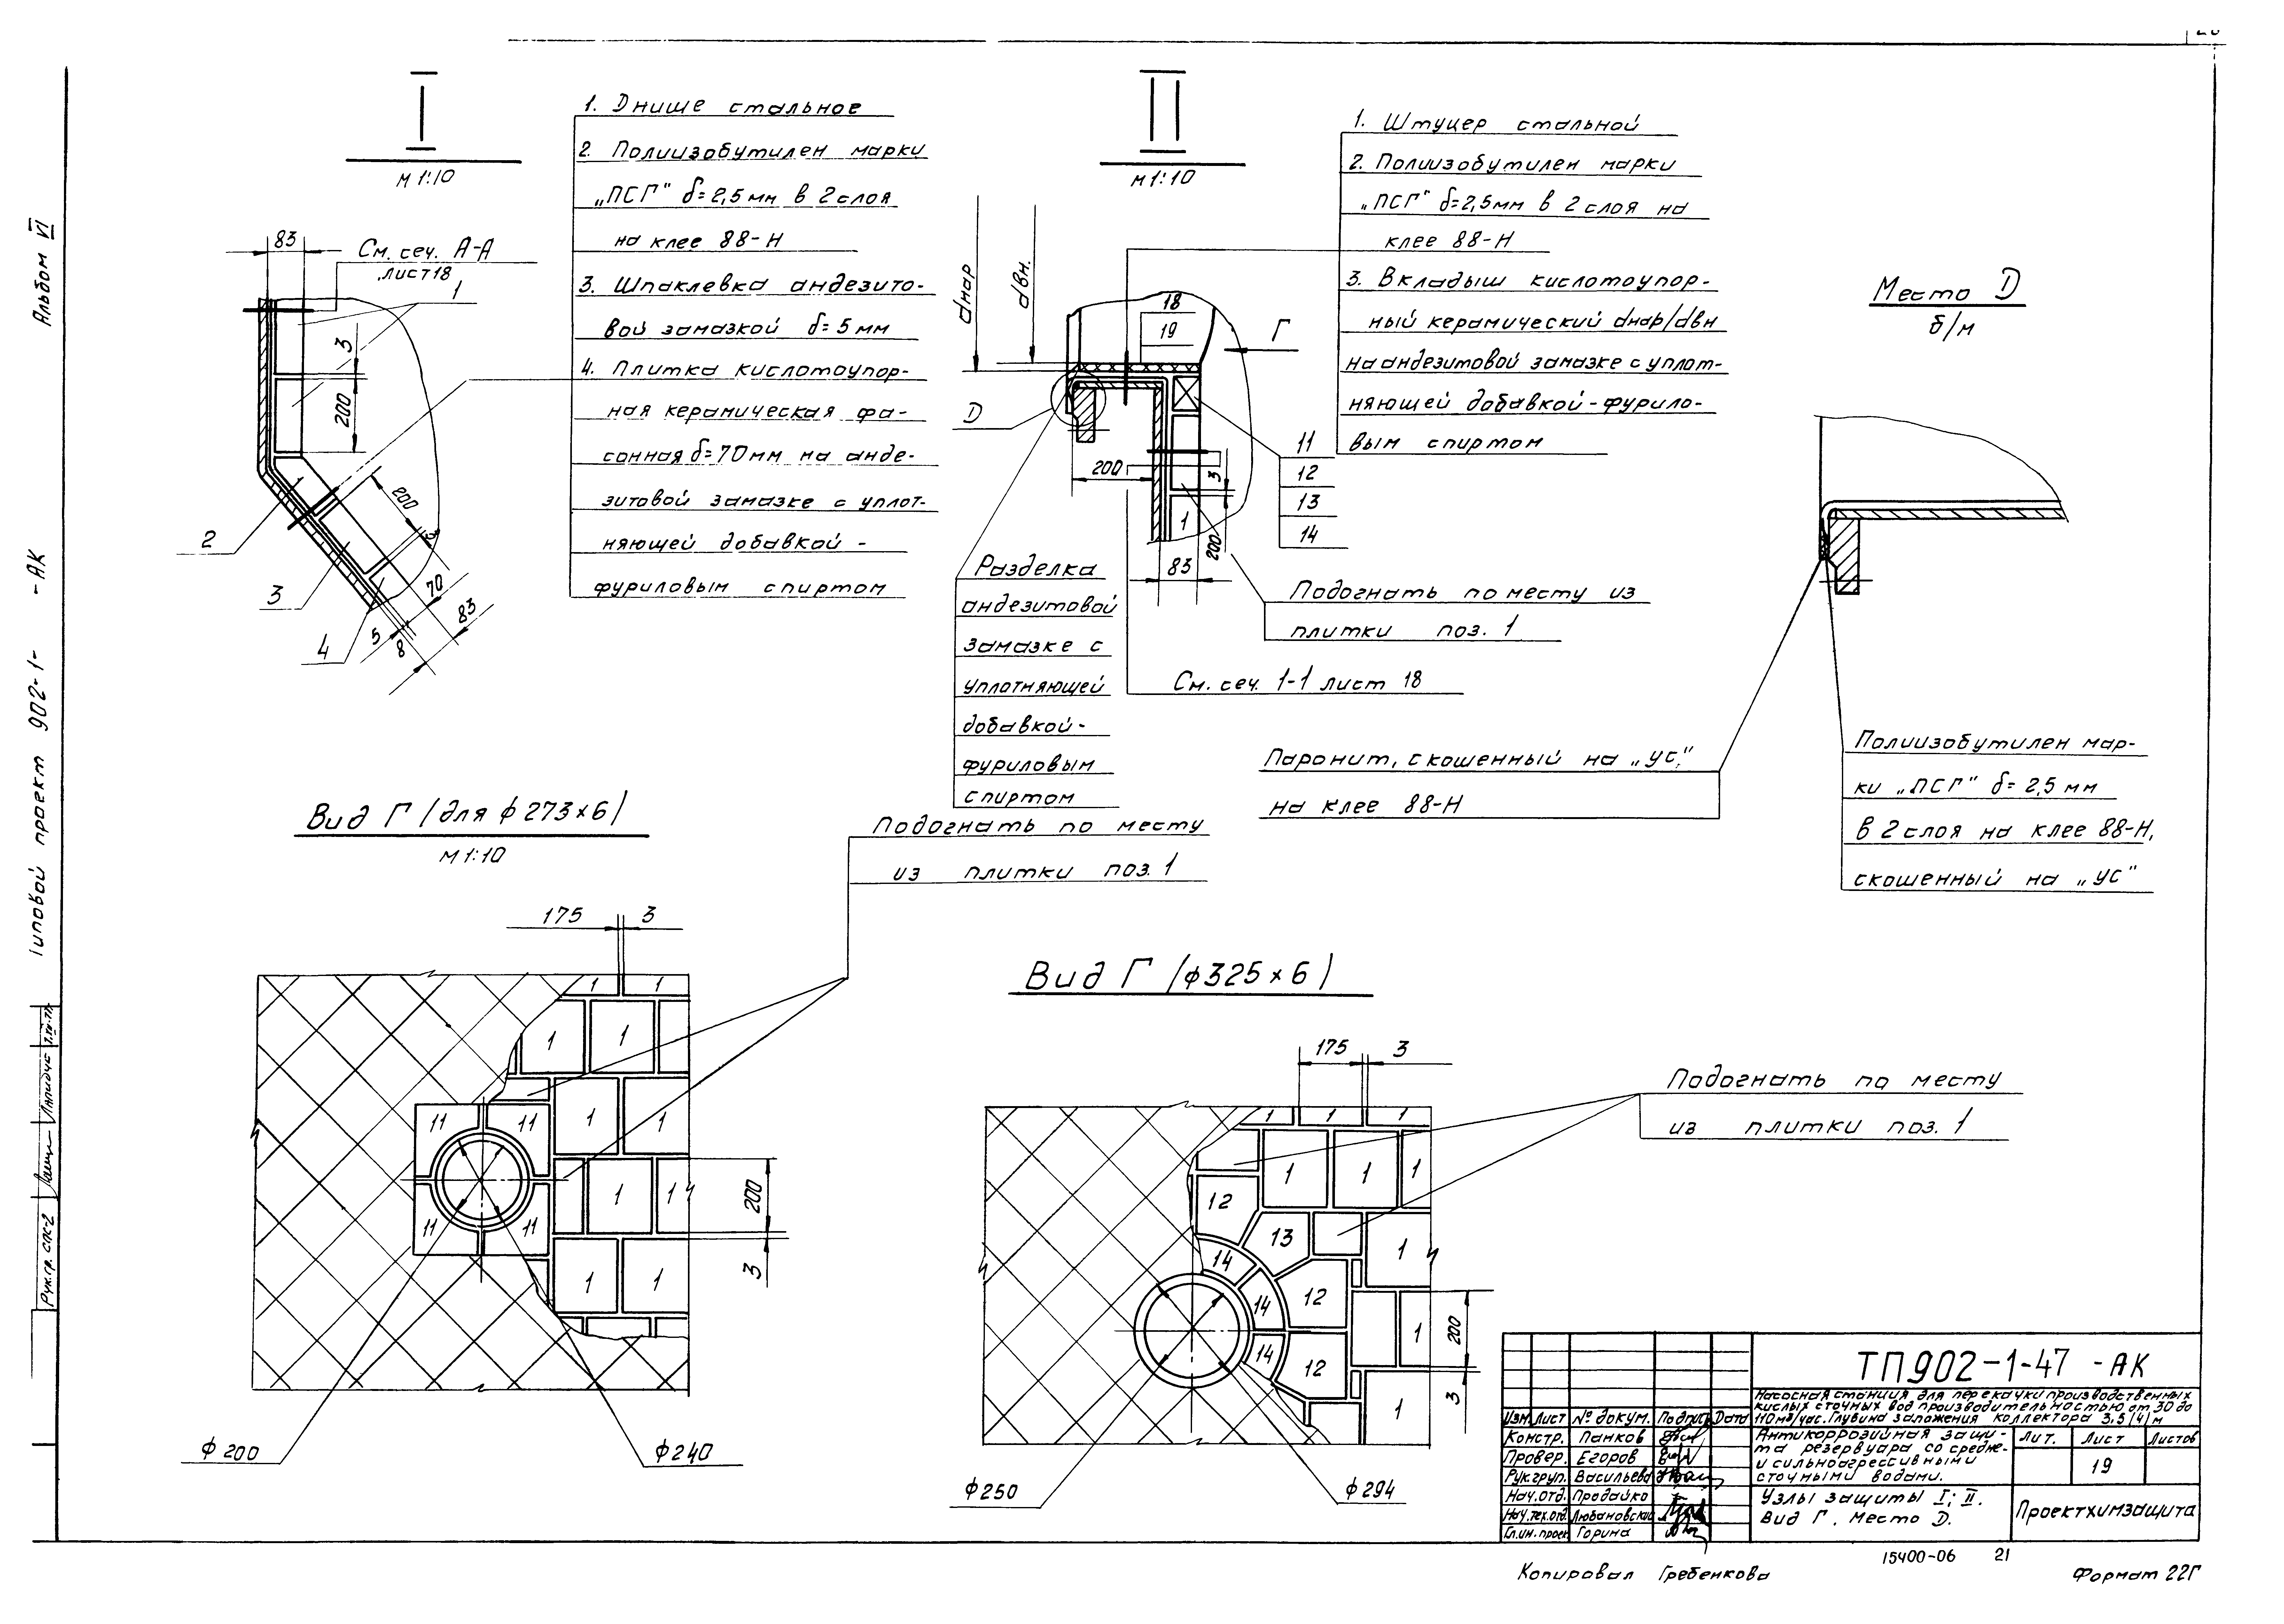 Альбом VI
Типовой проект 902-1- -АК
Рук.гр. СПС-2
I
М 1:10
1. Днище стальное
2. Полиизобутилен марки
„ПСГ" δ=2,5мм в 2 слоя
на клее 88-Н
3. Шпаклевка андезито-
вой замазкой δ=5мм
4. Плитка кислотоупор-
ная керамическая фа-
сонная δ=70мм на анде-
зитовой замазке с уплот-
няющей добавкой -
фуриловым спиртом
83
См. сеч. А-А
лист 18
1
3
200
200
3
2
3
4
70
83
5
8
II
М 1:10
1. Штуцер стальной
2. Полиизобутилен марки
„ПСГ" δ=2,5мм в 2 слоя на
клее 88-Н
3. Вкладыш кислотоупор-
ный керамический dнар/dвн
на андезитовой замазке с уплот-
няющей добавкой-фурило-
вым спиртом
dнар
dвн.
18
19
Г
D
11
12
13
14
200
3
1
200
83
Разделка
андезитовой
замазке с
уплотняющей
добавкой-
фуриловым
спиртом
Подогнать по месту из
плитки поз. 1
См. сеч. 1-1 лист 18
Место D
б/м
Паронит, скошенный на „ус"
на клее 88-Н
Полиизобутилен мар-
ки „ПСГ" δ=2,5 мм
в 2 слоя на клее 88-Н,
скошенный на „ус"
Вид Г (для ф273×6)
М 1:10
Подогнать по месту
из плитки поз. 1
175 3
1 1
1 1
1 1
11 11
11 11
1 1
1 1
200
3
ф200
ф240
Вид Г (ф325×6)
175 3
Подогнать по месту
из плитки поз. 1
1 1 1
1 1 1
12
13
14
1
12
14
1
14
12
1
200
3
ф250
ф294
ТП902-1-47 -АК
Насосная станция для перекачки производственных
кислых сточных вод производительностью от 30 до
110 м³/час. Глубина заложения коллектора 3,5/4/м
Изм. Лист № докум. Подпись Дата
Констр. Панков
Провер. Егоров
Рук.груп. Васильева
Нач.отд. Продайко
Нач.тех.отд. Любановский
Гл.ин.проек Горина
Антикоррозийная защи-
та резервуара со средне-
и сильноагрессивными
сточными водами.
Лит. Лист Листов
19
Узлы защиты I; II.
Вид Г. Место D.
Проектхимзащита
15400-06 21
Копировал Гребенкова
Формат 22Г